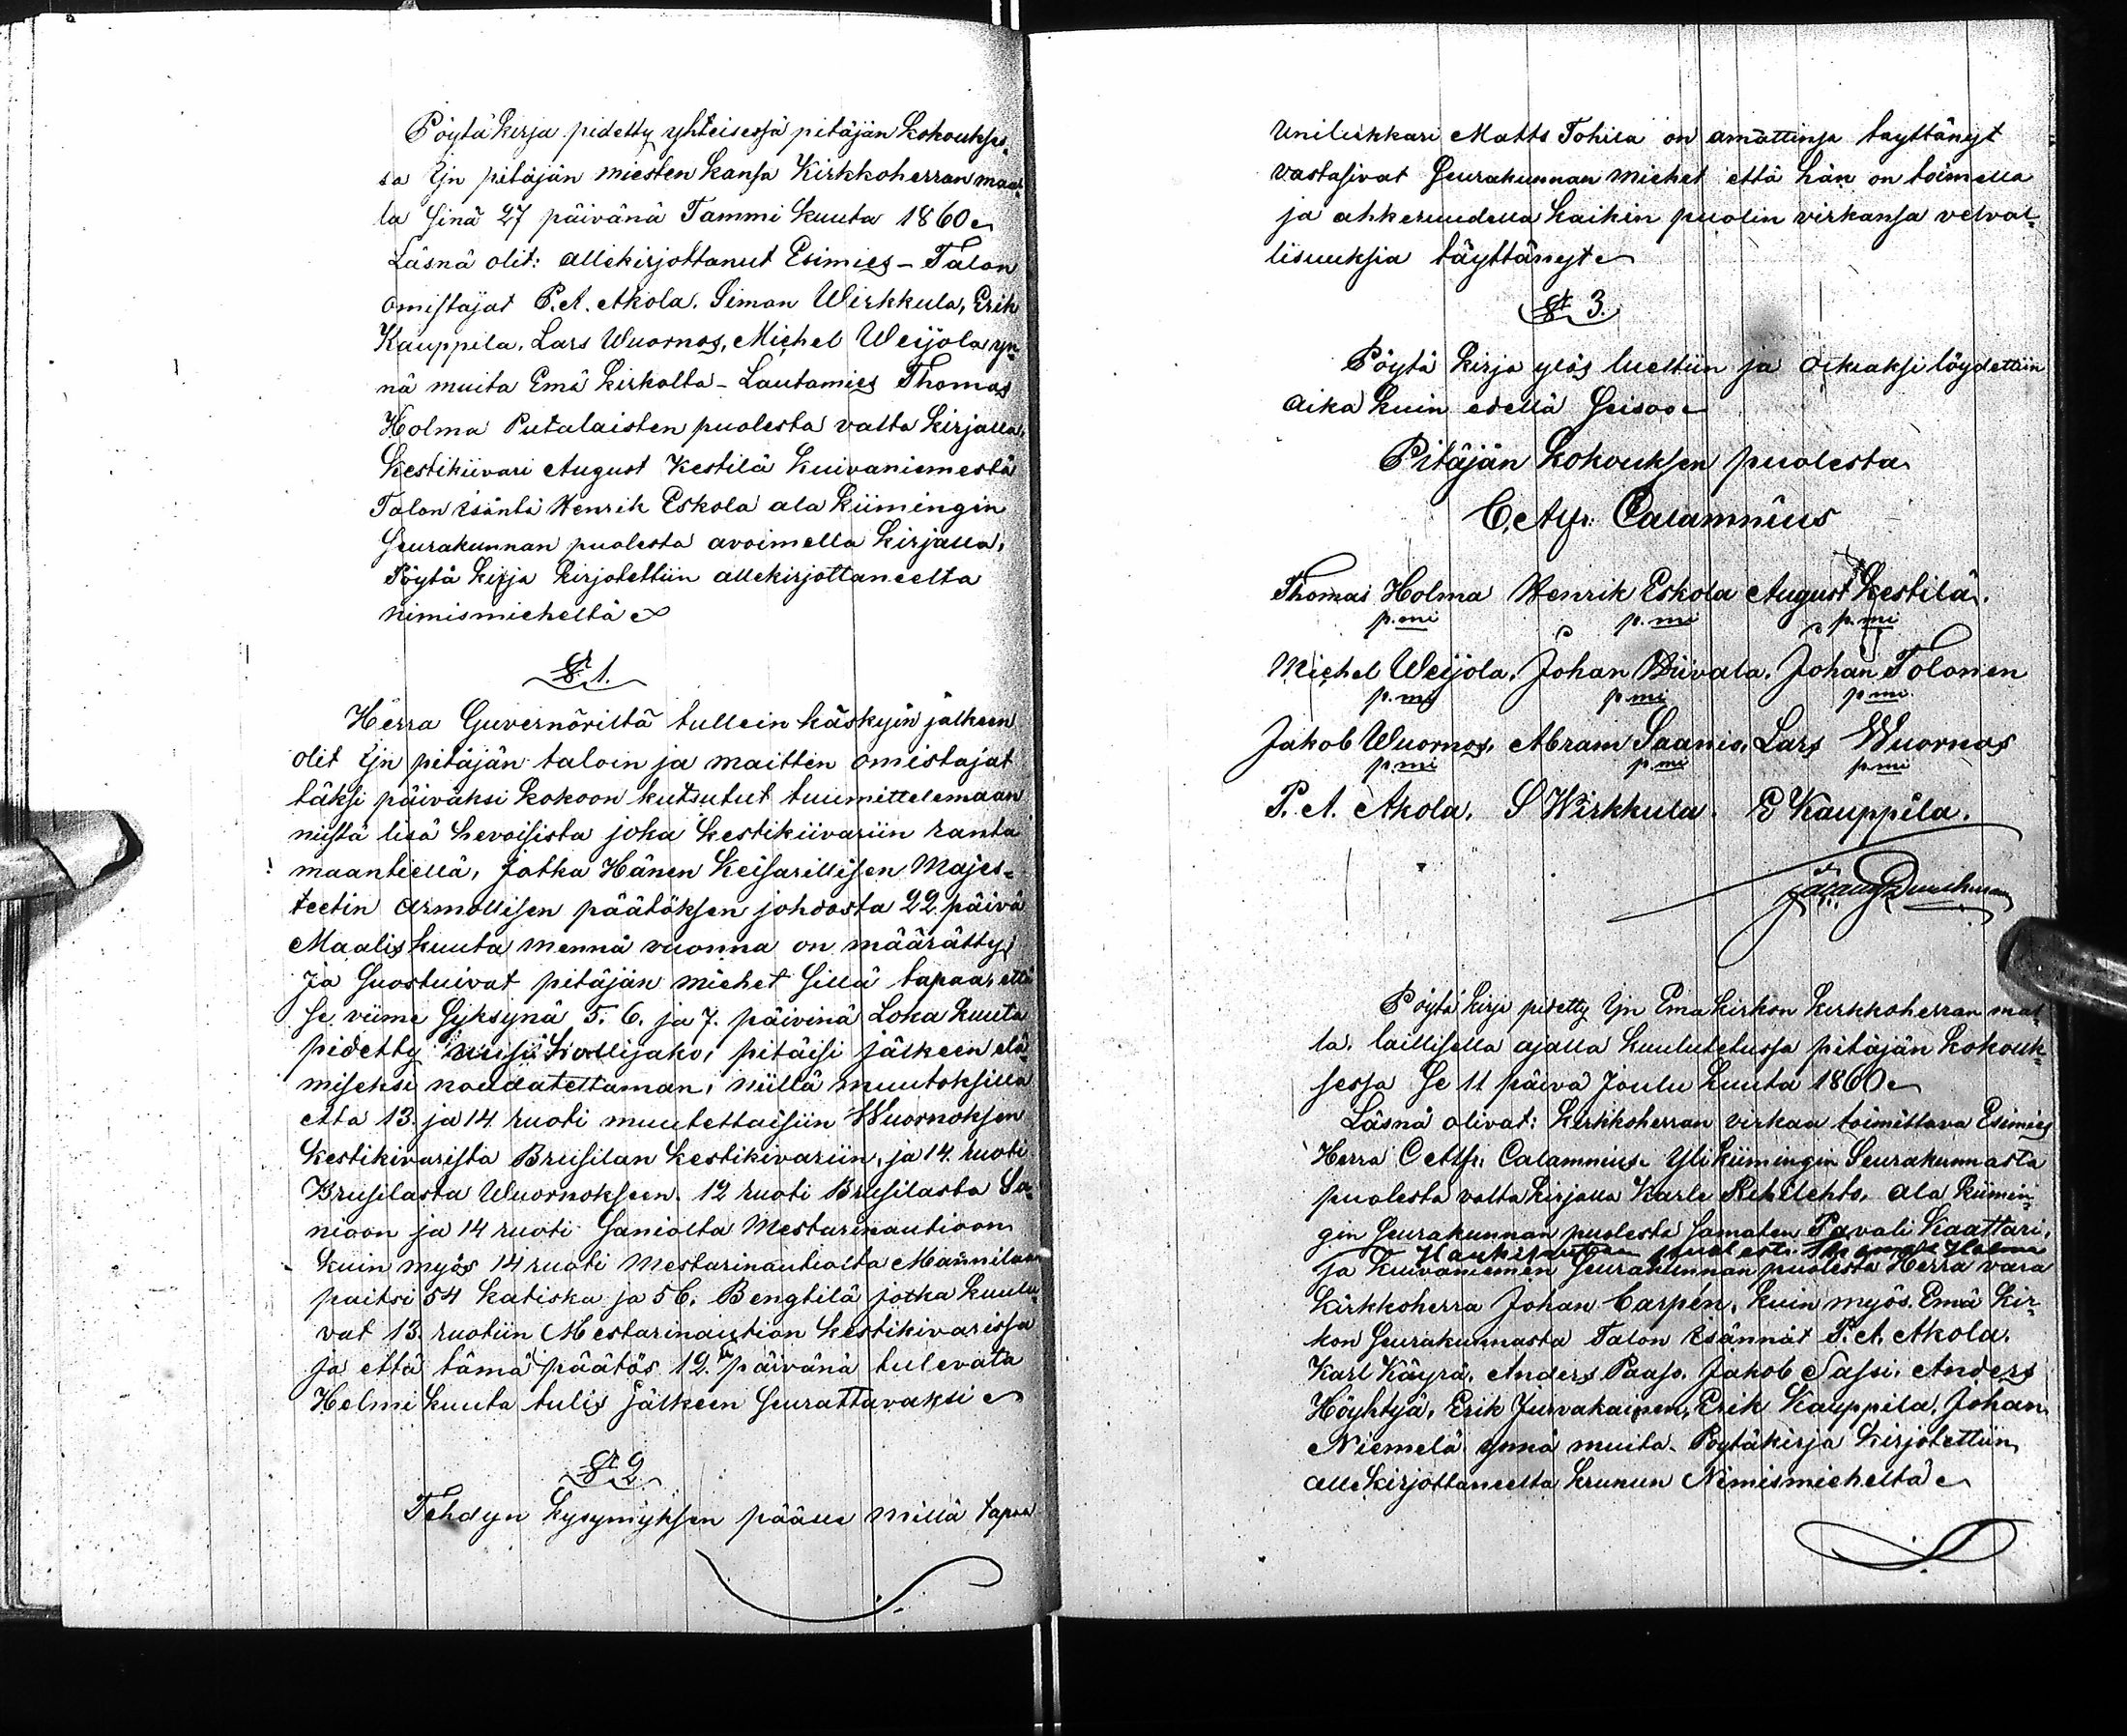 Pöytä kirja pidetty yhteisessä pitäjän kokoukses-
sa Ijn pitäjän miesten kansa Kirkkoherran maal-
la Sinä 27 päivänä Tammi kuuta 1860
Läsnä olit: allekirjottanut Esimies - Talon
omistajat P. A. Akola. Simon Wirkkula, Erik
Kauppila. Lars Wuornos, Michel Weijola yn-
nä muita Emä kirkolta - Lautamies Thomas
Holma Putalaisten puolesta valta kirjalla,
kestikiivari August Kestilä Kuivaniemestä
Talon isäntä Henrik Eskola ala kiimingin
Seurakunnan puolesta avoimella kirjalla,
Pöytä kirja kirjotettiin allekirjottaneelta
nimismieheltä
§ 1.
Herra Guvernöriltä tullein käskyin jälkeen
olit Ijn pitäjän taloin ja maitten omistajat
täksi päiväksi kokoon kutsutut tuumittelemaan
niistä lisä hevoisista joka kestikiivariin ranta
maantiellä, jotka Hänen Keisarillisen Majes-
teetin armollisen päätöksen johdosta 22 päivä
Maalis kuuta mennä vuonna on määrätty;
ja Suostuivat pitäjän miehet Sillä tapaa, että
Se viime Syksynä 5. 6. ja 7. päivinä Loka kuuta
pidetty hollijako, pitäisi jälkeen elä-
miseksi noudatettaman, niillä muutoksilla
että 13. ja 14. ruoti muutettaisiin Wuornoksen
kestikivarista Brusilan kestikivariin, ja 14. ruoti
Brusilasta Wuornokseen. 12 ruoti Brusilasta Sa-
nioon ja 14 ruoti Saniolta Mestarinautioon
kuin myös 14 ruoti Mestarinautiolta Mannilaan
paitsi 54 Katiska ja 56. Bengtilä jotka kuulu-
vat 13. ruotiin Mestarinaution kestikivarissa
ja että tämä päätös 12. päivänä tulevata
Helmi kuuta tulis jälkeen Seurattavaksi
§ 2
Tehdyn kysymyksen pääle millä tapaa
Unilukkari Matts Tohila on amattinsa täyttänyt
vastasivat Seurakunnan miehet että hän on toimella
ja ahkeruudella kaikin puolin virkansa velval-
lisuuksia täyttänyt
§ 3.
Pöytä kirja ylös luettiin ja oikiaksi löydettiin
aika kuin edellä Seisoo
Pitäjän kokouksen puolesta
C. Alfr. Calamnius
Thomas Holma Henrik Eskola August Kestilä.
p. mi p. mi p. mi
Michel Weijola. Johan Wiivala. Johan Tolonen
p. mi p. mi p. mi
Jakob Wuornos, Abram Saanio. Lars Wuornos
p. mi p. mi p. mi
P. A. Akola. S Wirkkula. E Kauppila.
Pöytä kirja pidetty Ijn Emä kirkon kirkkoherran maal-
la, laillisella ajalla kuulutetussa pitäjän kokouk-
sessa Se 11 päivä Joulu kuuta 1860
Läsnä olivat: Kirkkoherran virkaa toimittava Esimies
Herra C Alfr. Calamnius. Yli kiimingin Seurakunnasta
puolesta valta kirjalla Karle Rehilehto, ala kiimin-
gin Seurakunnan puolesta Samaten Pavali Kaattari,
Haukiputaan puolesti Thomas Holma
ja Kuivaniemen Seurakunnan puolesta Herra vara
kirkkoherra Johan Carpén, kuin myös Emä kir-
kon Seurakunnasta Talon isännät P. A. Akola.
Karl Käyrä, Anders Paaso. Jakob Sassi. Anders
Höyhtyä, Erik Jurvakainen, Erik Kauppila. Johan
Niemelä ynnä muita. Pöytäkirja kirjotettiin
allekirjottaneelta krunun Nimismieheltä